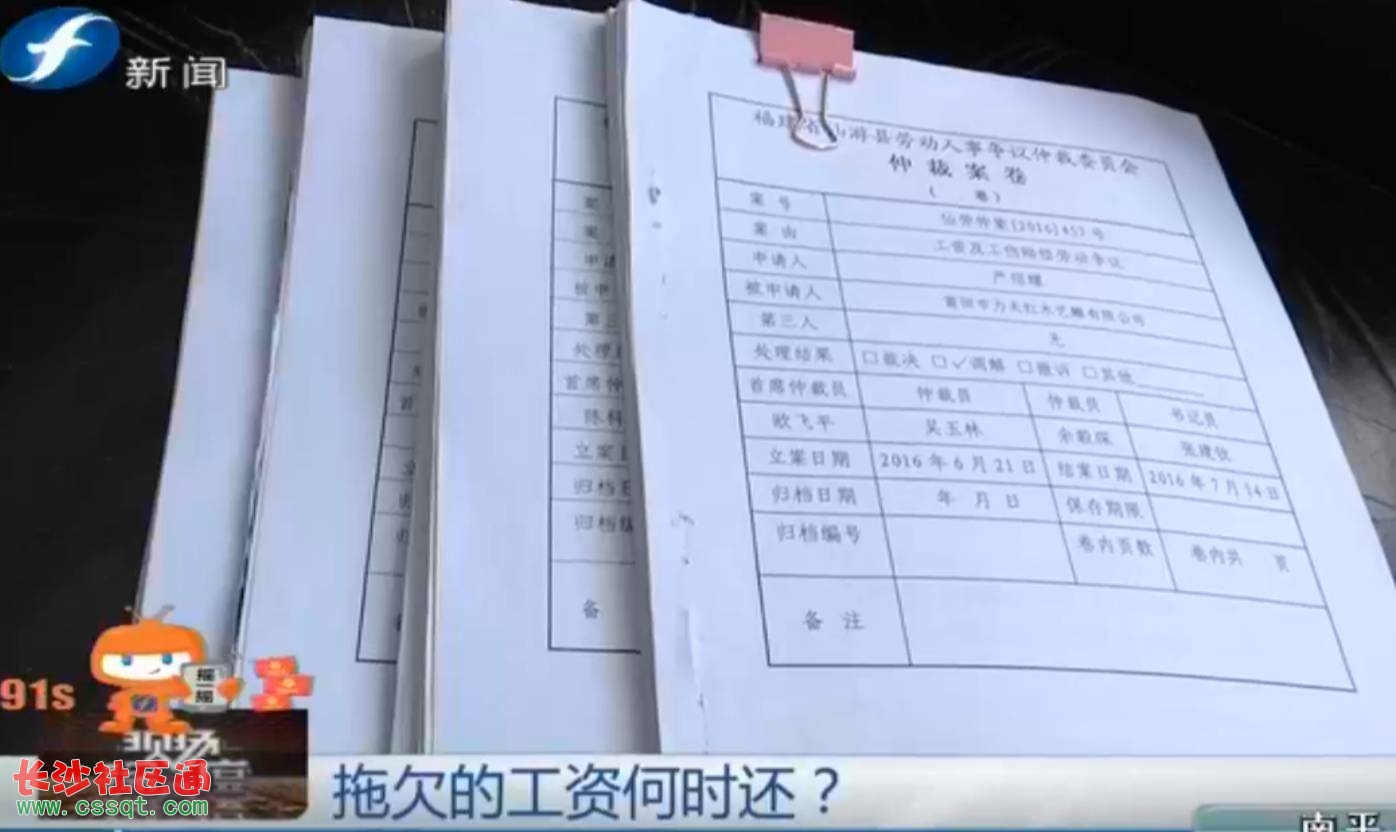 新闻
福建省仙游县劳动人事争议仲裁委员会
仲裁案卷
( 卷)
案号 仙劳仲案[2016]457号
案由 工资及工伤赔偿劳动争议
申请人
被申请人 莆田市力天红木艺雕有限公司
第三人 无
处理结果 □裁决 □✓调解 □撤诉 □其他
首席仲裁员 仲裁员 仲裁员 书记员
欧飞平 吴玉林 余毅琛 张建钦
立案日期 2016年6月21日 结案日期 2016年7月14日
归档日期 年 月 日 保存期限
归档编号 卷内页数 卷内共 页
备注
案
案
申请
被申
第三
处理
首席仲
陈科
立案日
归档日
归档编
备
91s
摇一摇
现场
长沙社区通
www.cssqt.com
拖欠的工资何时还？
南平